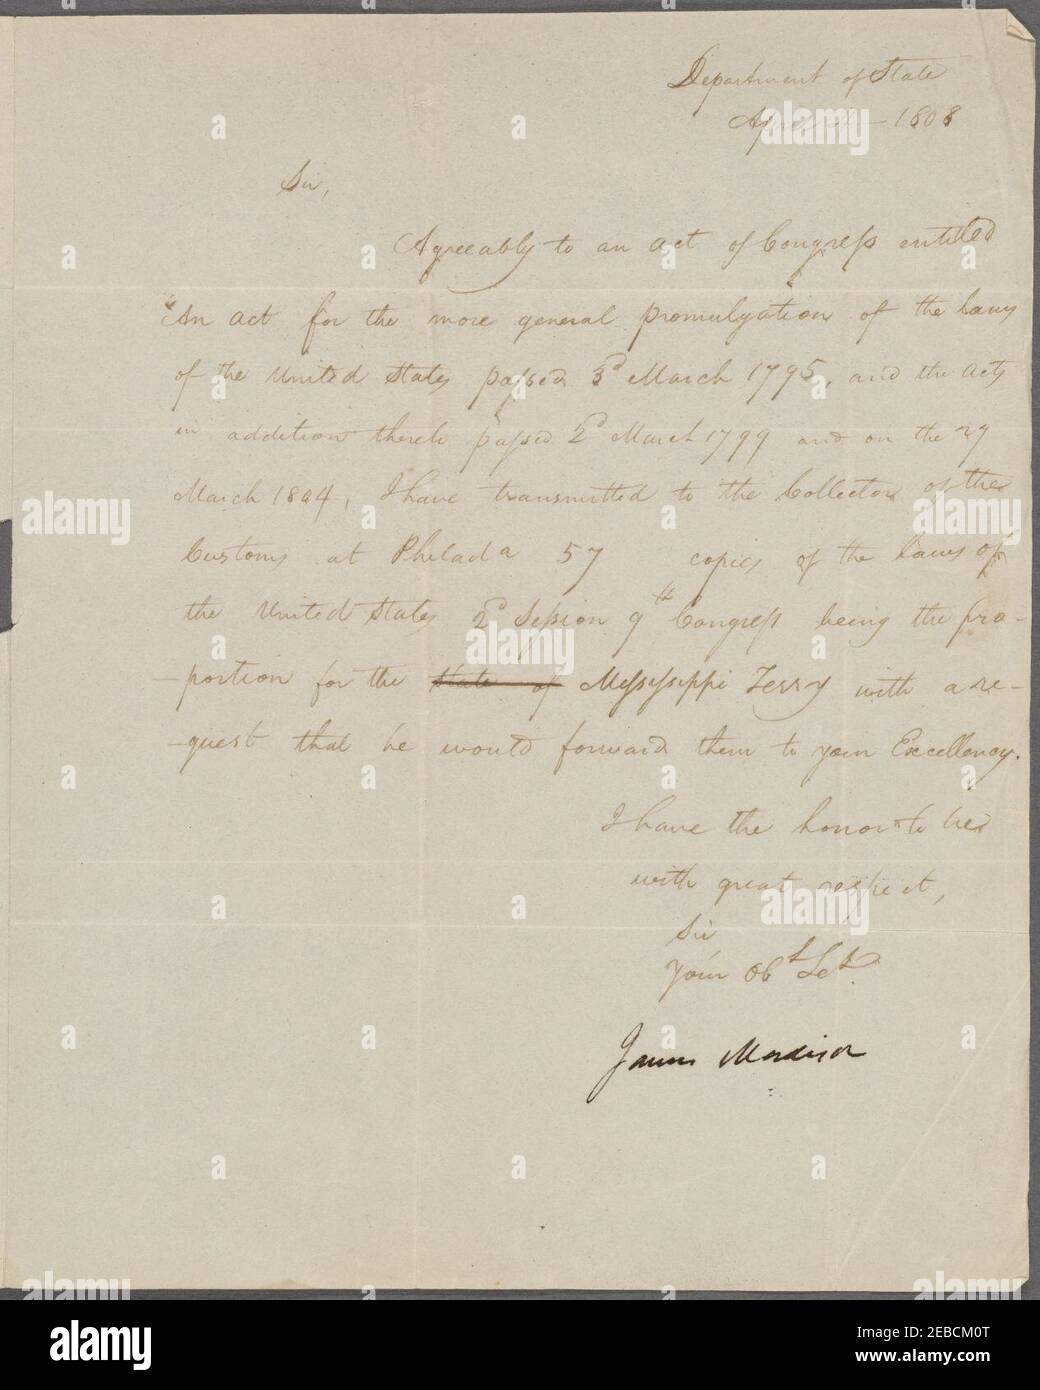 Department of State
April 1808
Sir,
Agreeably to an act of Congress entitled
"An act for the more general promulgation of the Laws
of the United States passed 3d March 1795, and the acts
in addition thereto passed 2d March 1799 and on the 27
March 1804, I have transmitted to the Collector of the
Customs at Philada 57 copies of the Laws of
the United States 2d Session 9th Congress being the pro-
-portion for the state of Mississippi Terry with a re-
-quest that he would forward them to your Excellency.
I have the honor to be
with great respect,
Sir
Your Obt Set
James Madison
alamy
Image ID: 2EBCM0T
www.alamy.com